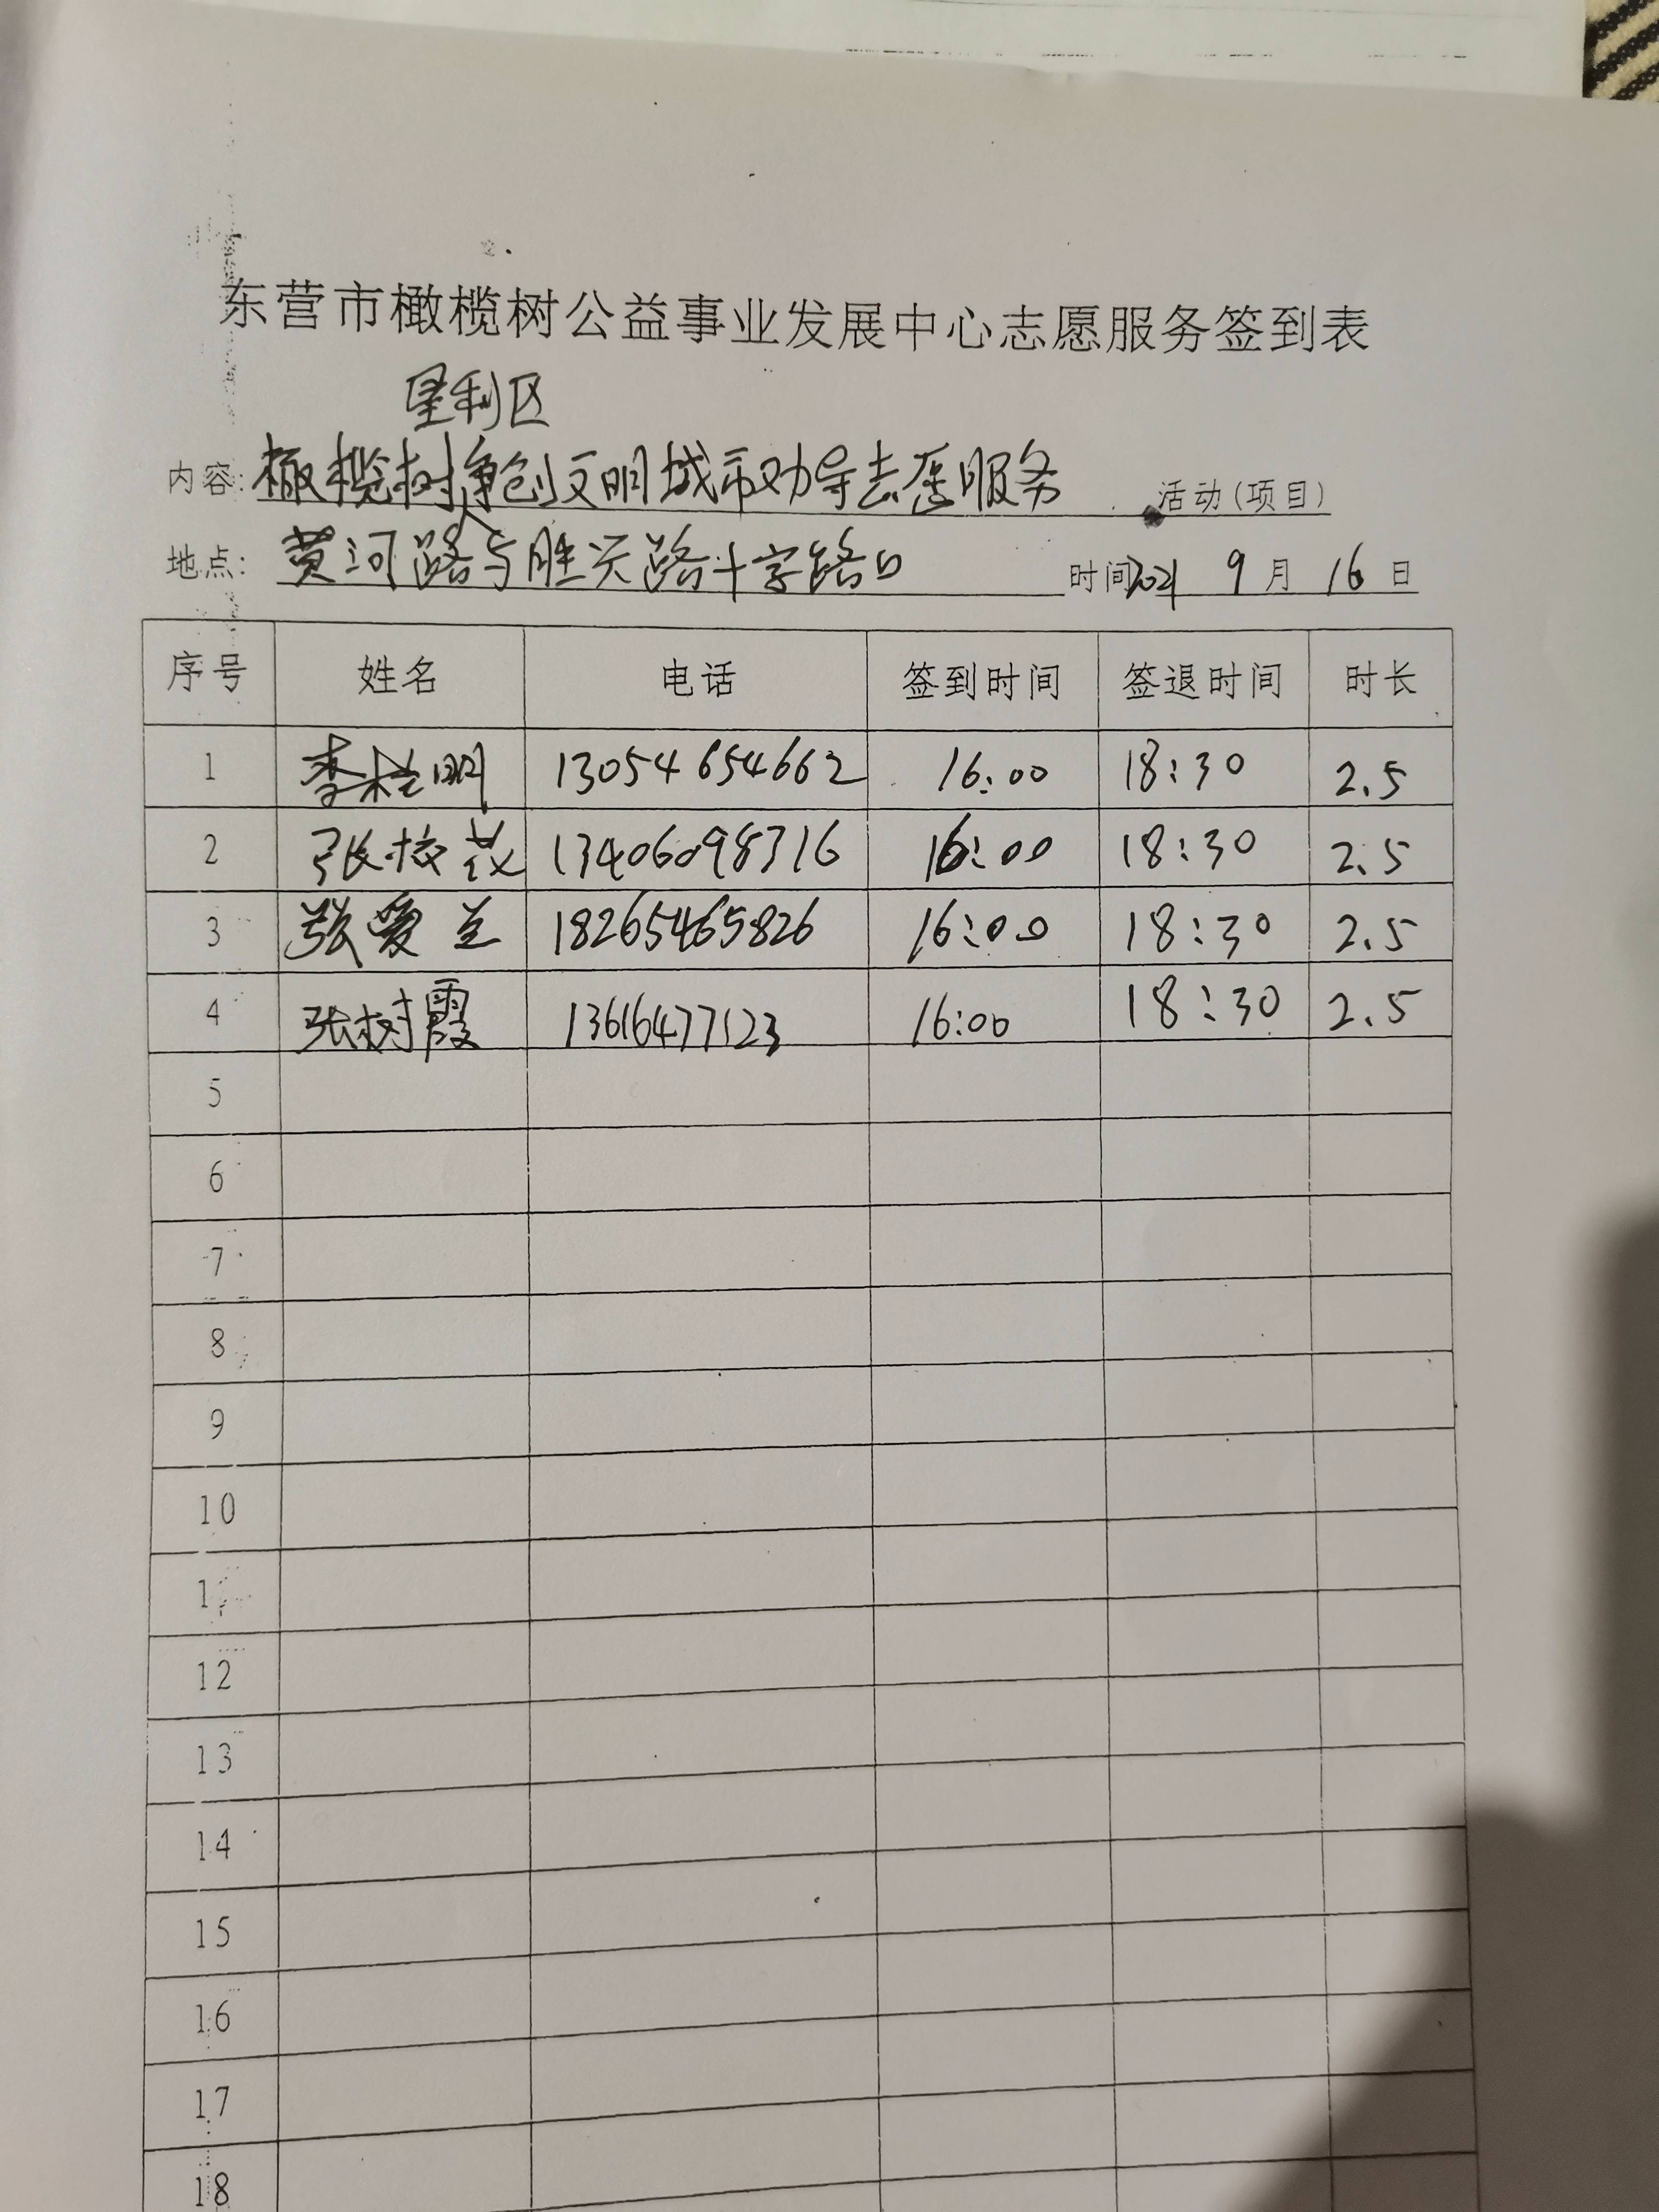 东营市橄榄树公益事业发展中心志愿服务签到表
垦利区
内容: 橄榄树争创文明城市劝导志愿服务 活动(项目)
地点: 黄河路与胜兴路十字路口 时间2021 9月16日
序号 姓名 电话 签到时间 签退时间 时长
1 李桂明 13054654662 16:00 18:30 2.5
2 张 13406098316 16:00 18:30 2.5
3 张爱兰 18265465826 16:00 18:30 2.5
4 张树霞 13616477123 16:00 18:30 2.5
5
6
7
8
9
10
12
13
14
15
16
17
18